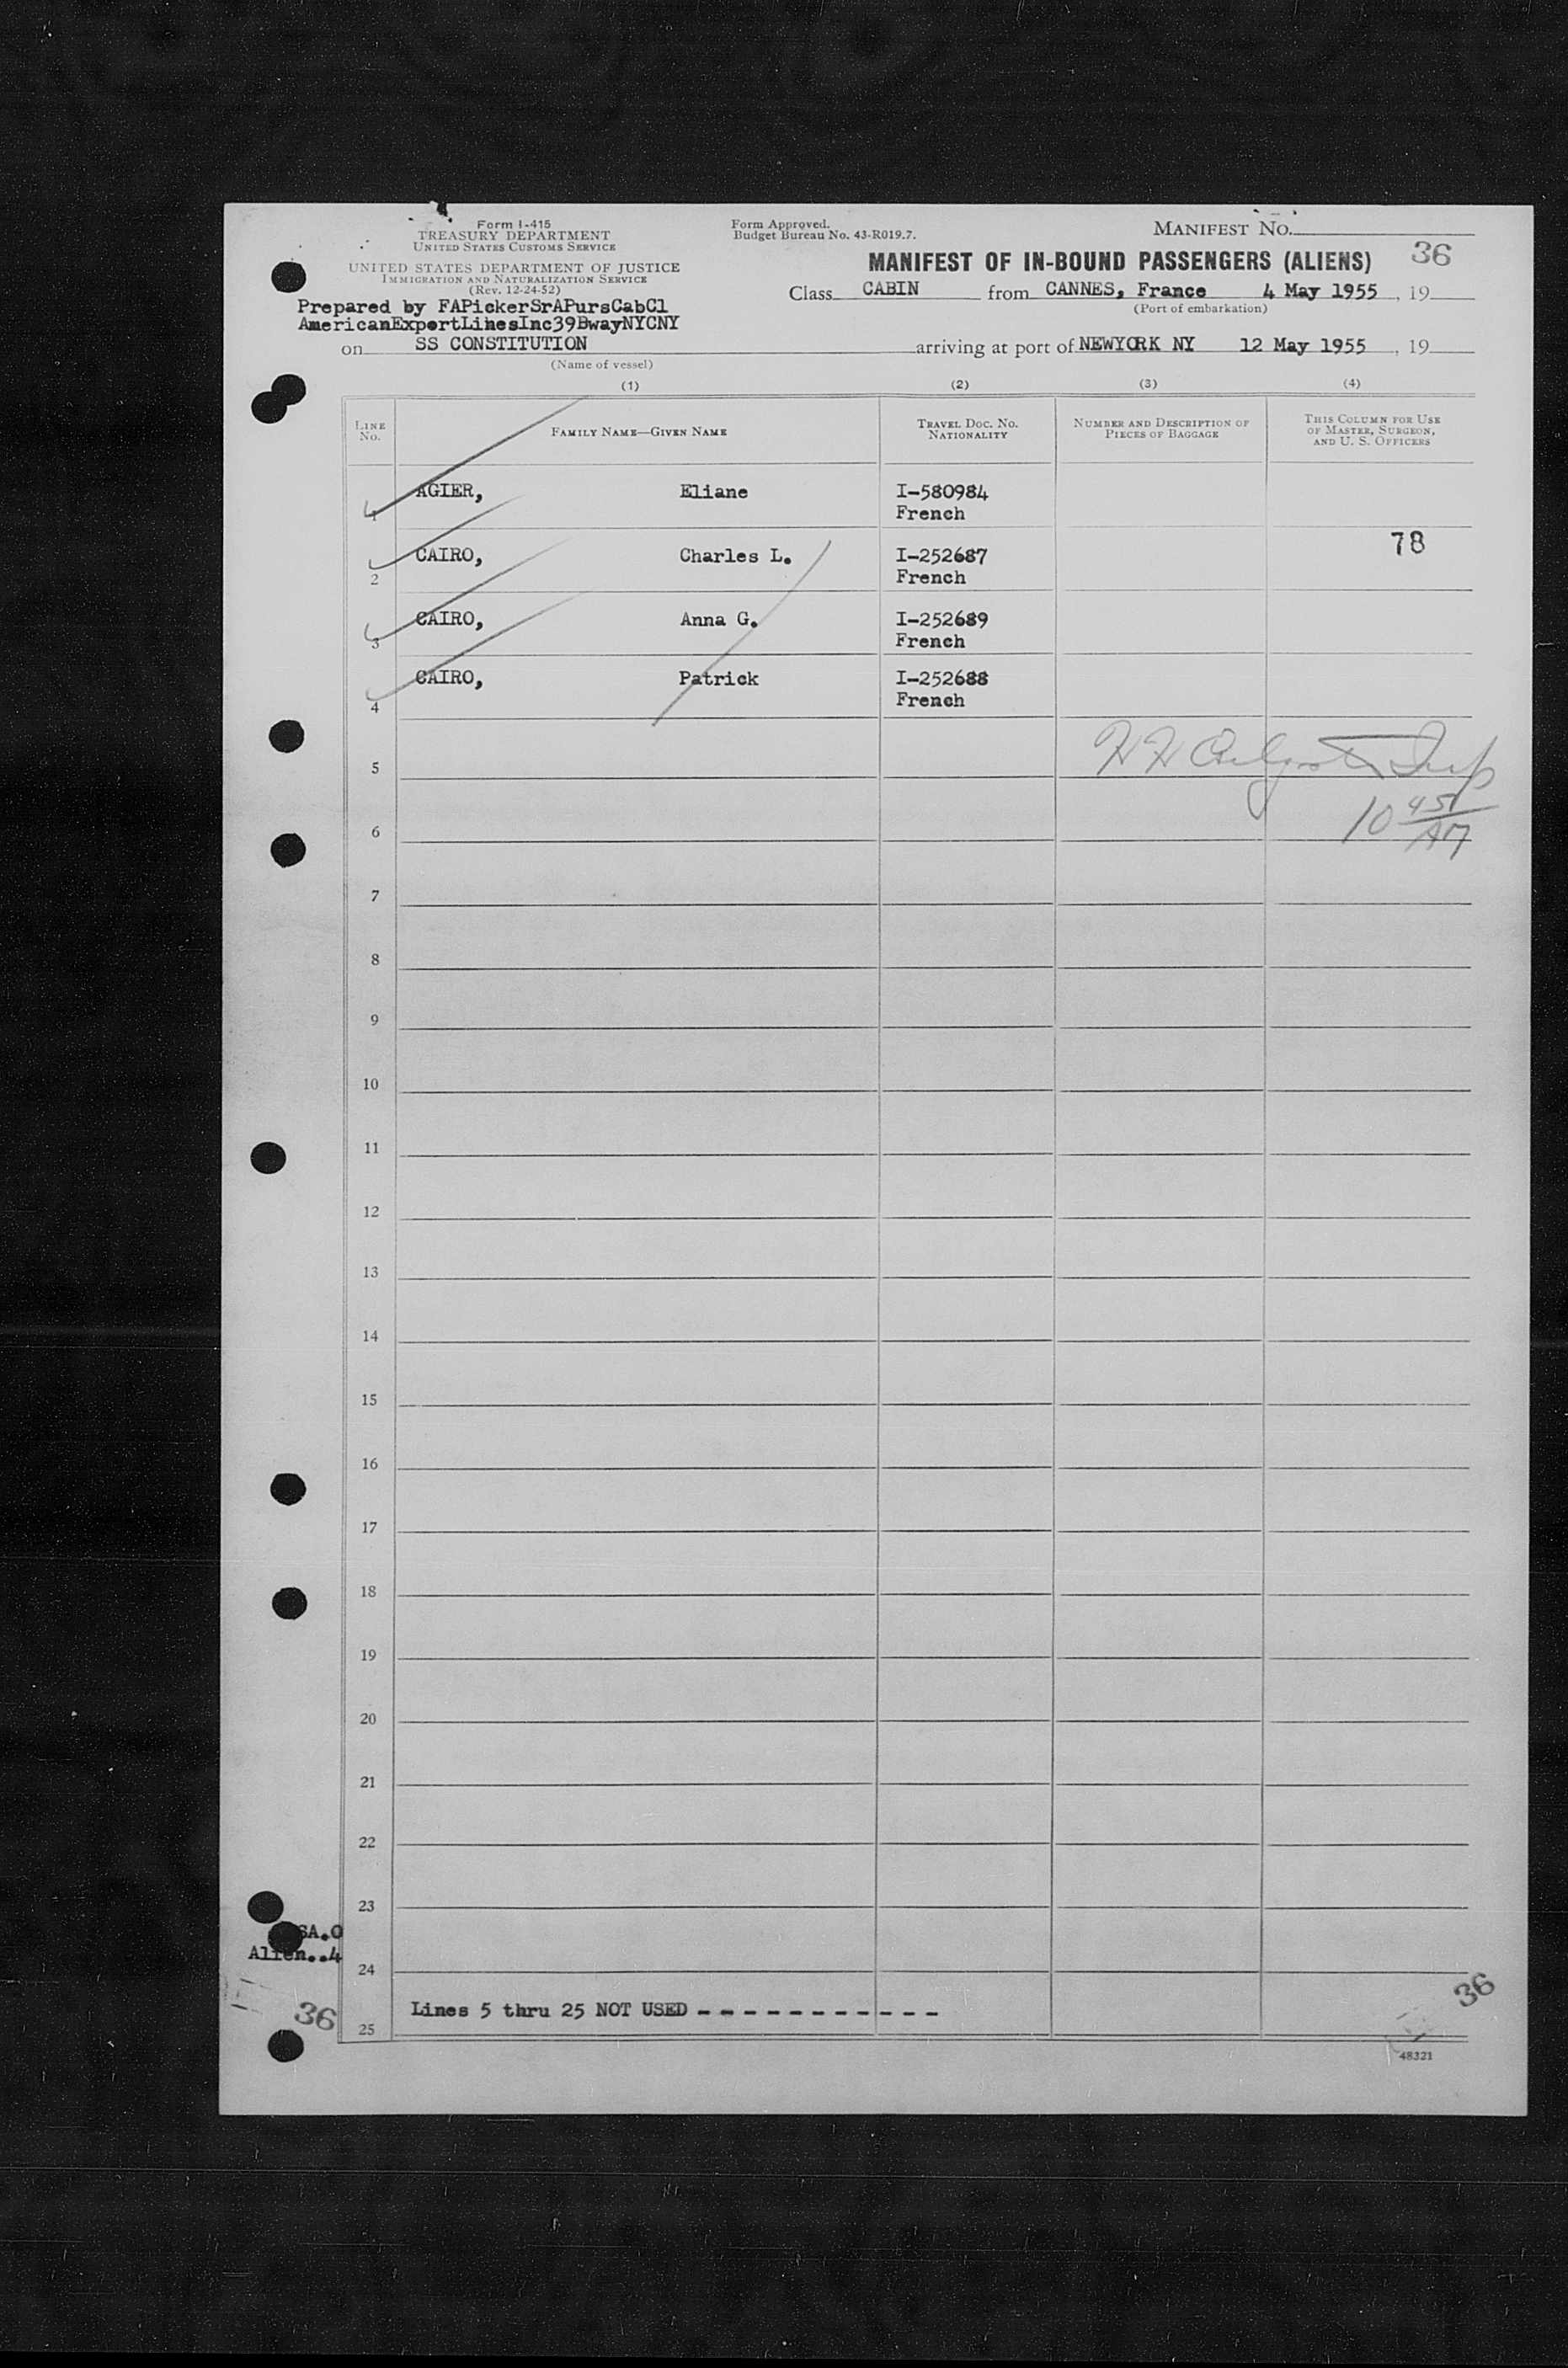 Form I-415
TREASURY DEPARTMENT
UNITED STATES CUSTOMS SERVICE
UNITED STATES DEPARTMENT OF JUSTICE
IMMIGRATION AND NATURALIZATION SERVICE
(Rev. 12-24-52)
Form Approved.
Budget Bureau No. 43-R019.7.
MANIFEST NO.
36
MANIFEST OF IN-BOUND PASSENGERS (ALIENS)
Prepared by FAPickerSrAPursCabCl
AmericanExportLinesInc39BwayNYCNY
Class CABIN from CANNES, France 4 May 1955, 19
(Port of embarkation)
on SS CONSTITUTION arriving at port of NEWYORK NY 12 May 1955, 19
(Name of vessel)
(1) (2) (3) (4)
LINE NO. FAMILY NAME—GIVEN NAME TRAVEL DOC. NO. NATIONALITY NUMBER AND DESCRIPTION OF PIECES OF BAGGAGE THIS COLUMN FOR USE OF MASTER, SURGEON, AND U. S. OFFICERS
1 AGIER, Eliane I-580984
French
78
2 CAIRO, Charles L. I-252687
French
3 CAIRO, Anna G. I-252689
French
4 CAIRO, Patrick I-252688
French
5
10 45/AM
6
7
8
9
10
11
12
13
14
15
16
17
18
19
20
21
22
23
SA.0
Alien..4
24
36
Lines 5 thru 25 NOT USED - - - - - - - - - - -
25
36
48321